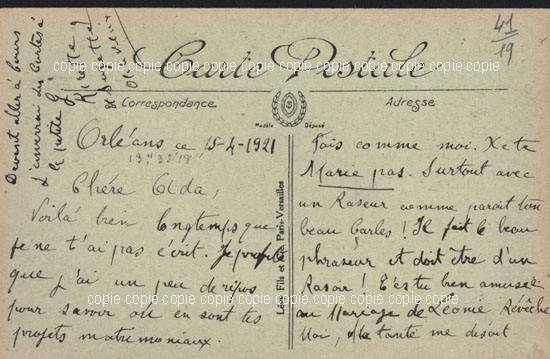 41
19
Devant aller à
d'enverrai des Cartes à
la petite
Carte Postale
Correspondance
Adresse
Modèle Déposé
Orléans ce 15-4-1921
Chère Ada,
Voilà bien longtemps que
je ne t'ai pas écrit. Je profite
que j'ai un peu de répos
pour savoir où en sont tes
projets matrimoniaux.
Levy Fils et Cie, Paris-Versailles
Fais comme moi. Ne te
Marie pas. Surtout avec
un Raseur comme parait ton
beau Carles! Il fait le beau
phraseur et doit être d'un
Rasoir! T'es tu bien amusée
au Mariage de Léonie Révêche
Moi, ma tante me disait
copie copie copie copie copie copie copie copie
copie copie copie copie copie copie copie copie
copie copie copie copie copie copie copie copie